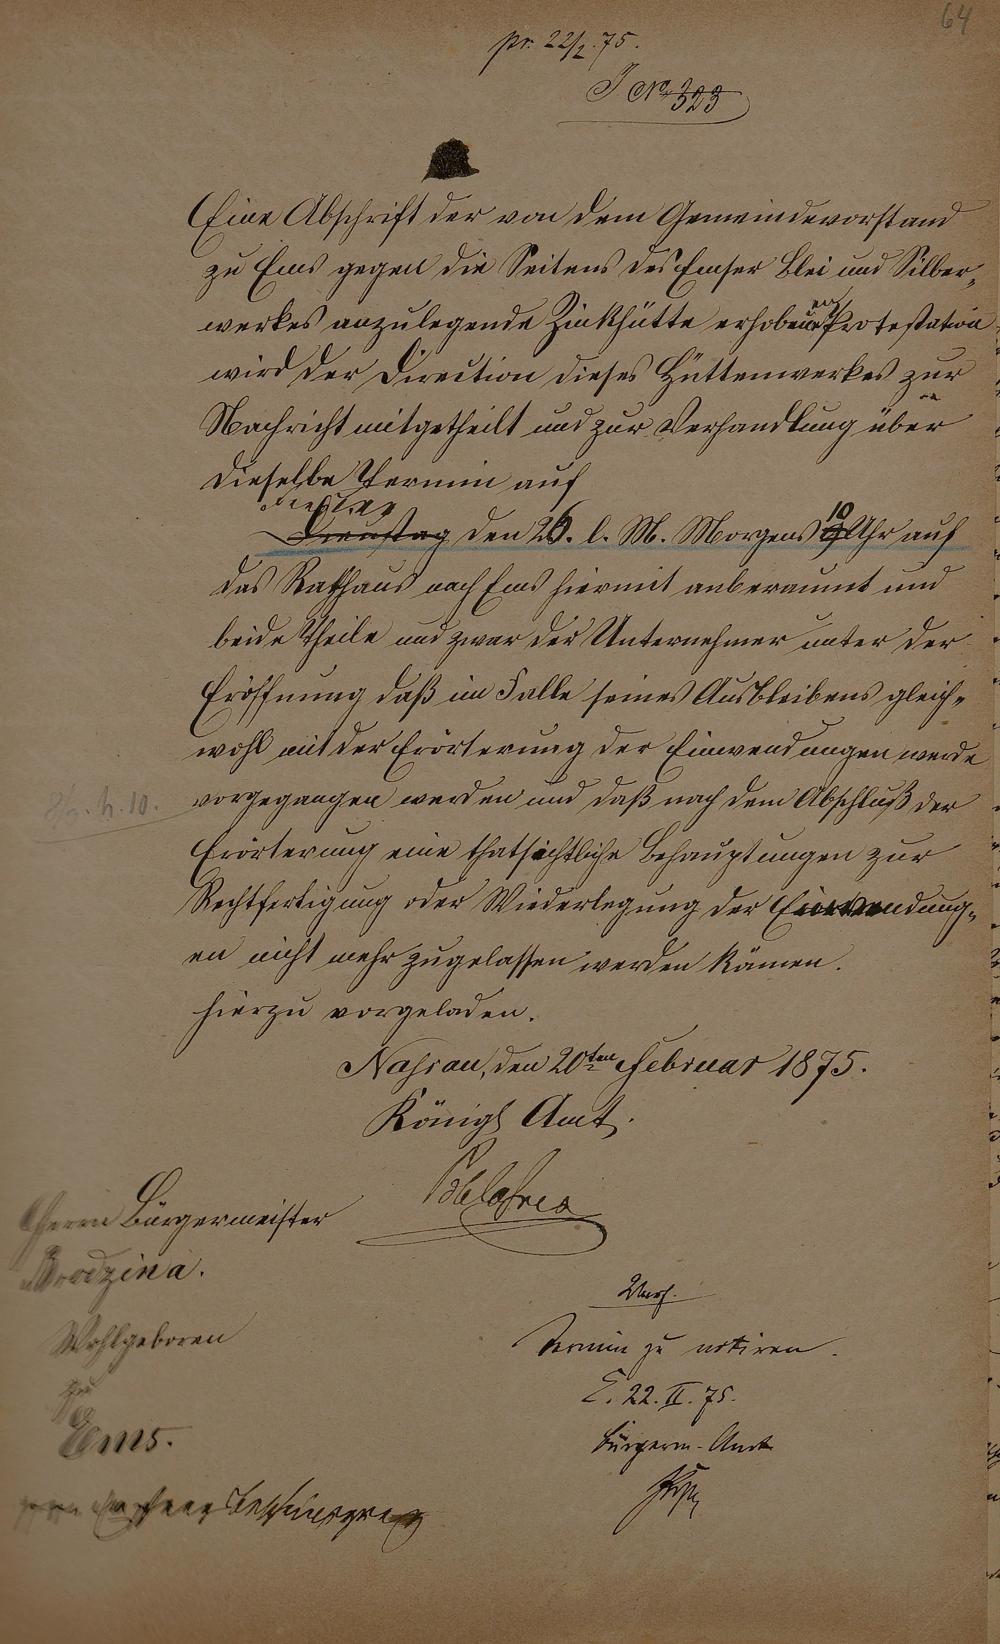 64
pr. 22/2. 75.
J № 323
Eine Abschrift der von dem Gemeindevorstand
zu Ems gegen die Seitens des Emser Blei und Silber-
werkes anzulegende Zinkhütte erhobenen Protestation
wird der Direction dieses Hüttenwerkes zur
Nachricht mitgetheilt und zur Verhandlung über
dieselbe Termin auf
Dienstag den 26. l. M. Morgens 10 Uhr auf
das Rathhaus nach Ems hiermit anberaumt und
beide Theile und zwar der Unternehmer unter der
Eröffnung daß im Falle seines Ausbleibens gleich-
wohl mit der Erörterung der Einwendungen werde
vorgegangen werden und daß nach dem Abschluß der
Erörterung eine thatsächtliche Behauptungen zur
Rechtfertigung oder Wiederlegung der Einwendung-
en nicht mehr zugelassen werden kämen.
hierzu vorgeladen.
Nassau, den 20ten Februar 1875.
Königl Amt.
Herrn Bürgermeister
Brodzina.
Wohlgeboren
zu
Ems.
Termin zu notiren.
E. 22. II. 75.
Bürgerm-Amt